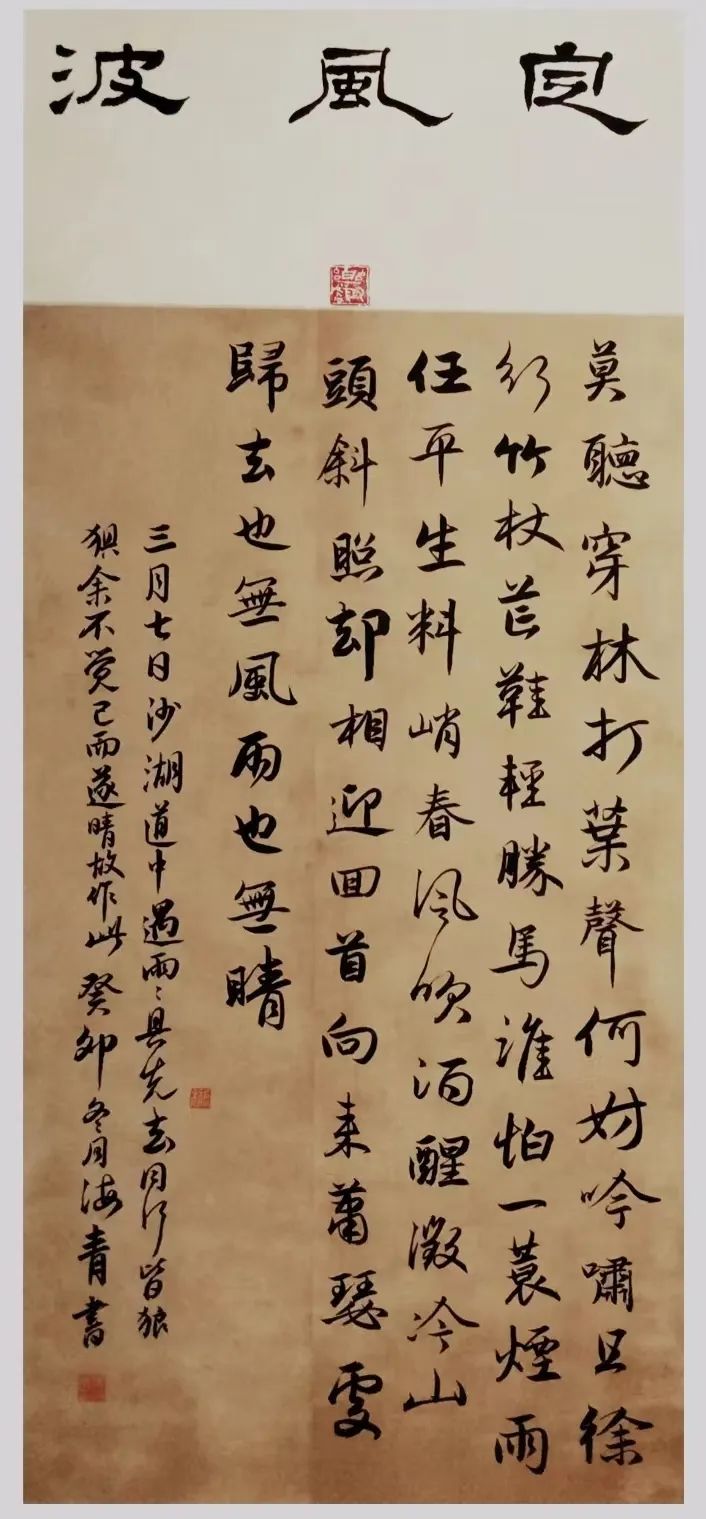 定風波
莫聽穿林打葉聲何妨吟嘯且徐
行竹杖芒鞋輕勝馬誰怕一蓑煙雨
任平生料峭春風吹酒醒微冷山
頭斜照却相迎回首向来蕭瑟處
歸去也無風雨也無晴
三月七日沙湖道中遇雨〻具先去同行皆狼
狽余不觉已而遂晴故作此癸卯冬月海青書